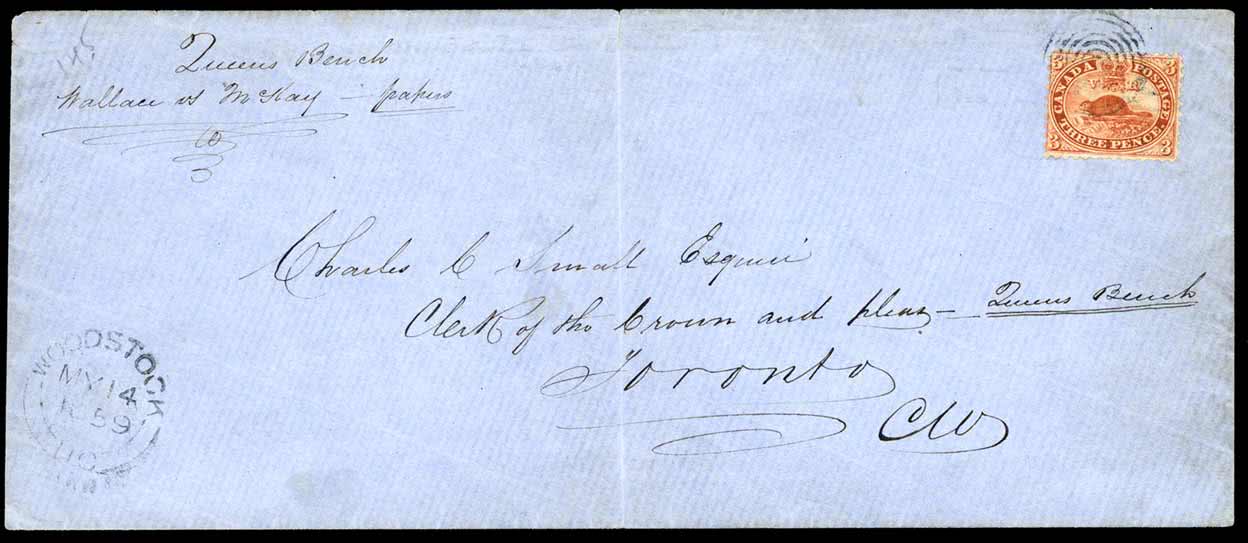 145
Queens Bench
Wallace vs McKay — papers
3 CANADA POSTAGE 3
3 THREE PENCE 3
Charles C Small Esquire
Clerk of the Crown and pleas — Queens Bench
Toronto
CW
WOODSTOCK
MY 14
59